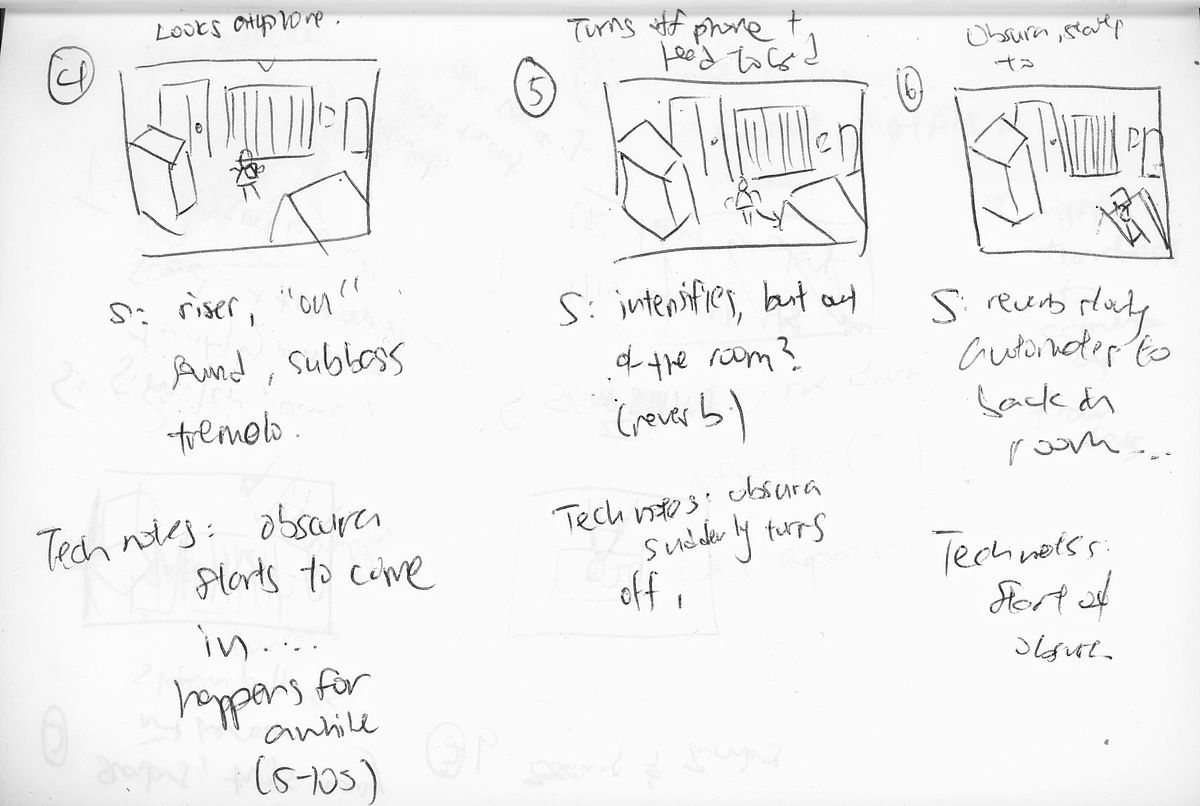 4
Looks at phone.
S: riser, "on"
sound, subbass
tremolo.
Tech notes: obscura
starts to come
in....
happens for
awhile
(5-10s)
5
Turns off phone +
head to bed
S: intensifies, but out
of the room?
(reverb)
Tech notes: obsura
suddenly turns
off,
6
Obsura, starts
to
S: reverb slowly
automates to
back in
room...
Tech notes:
Start of
obsura